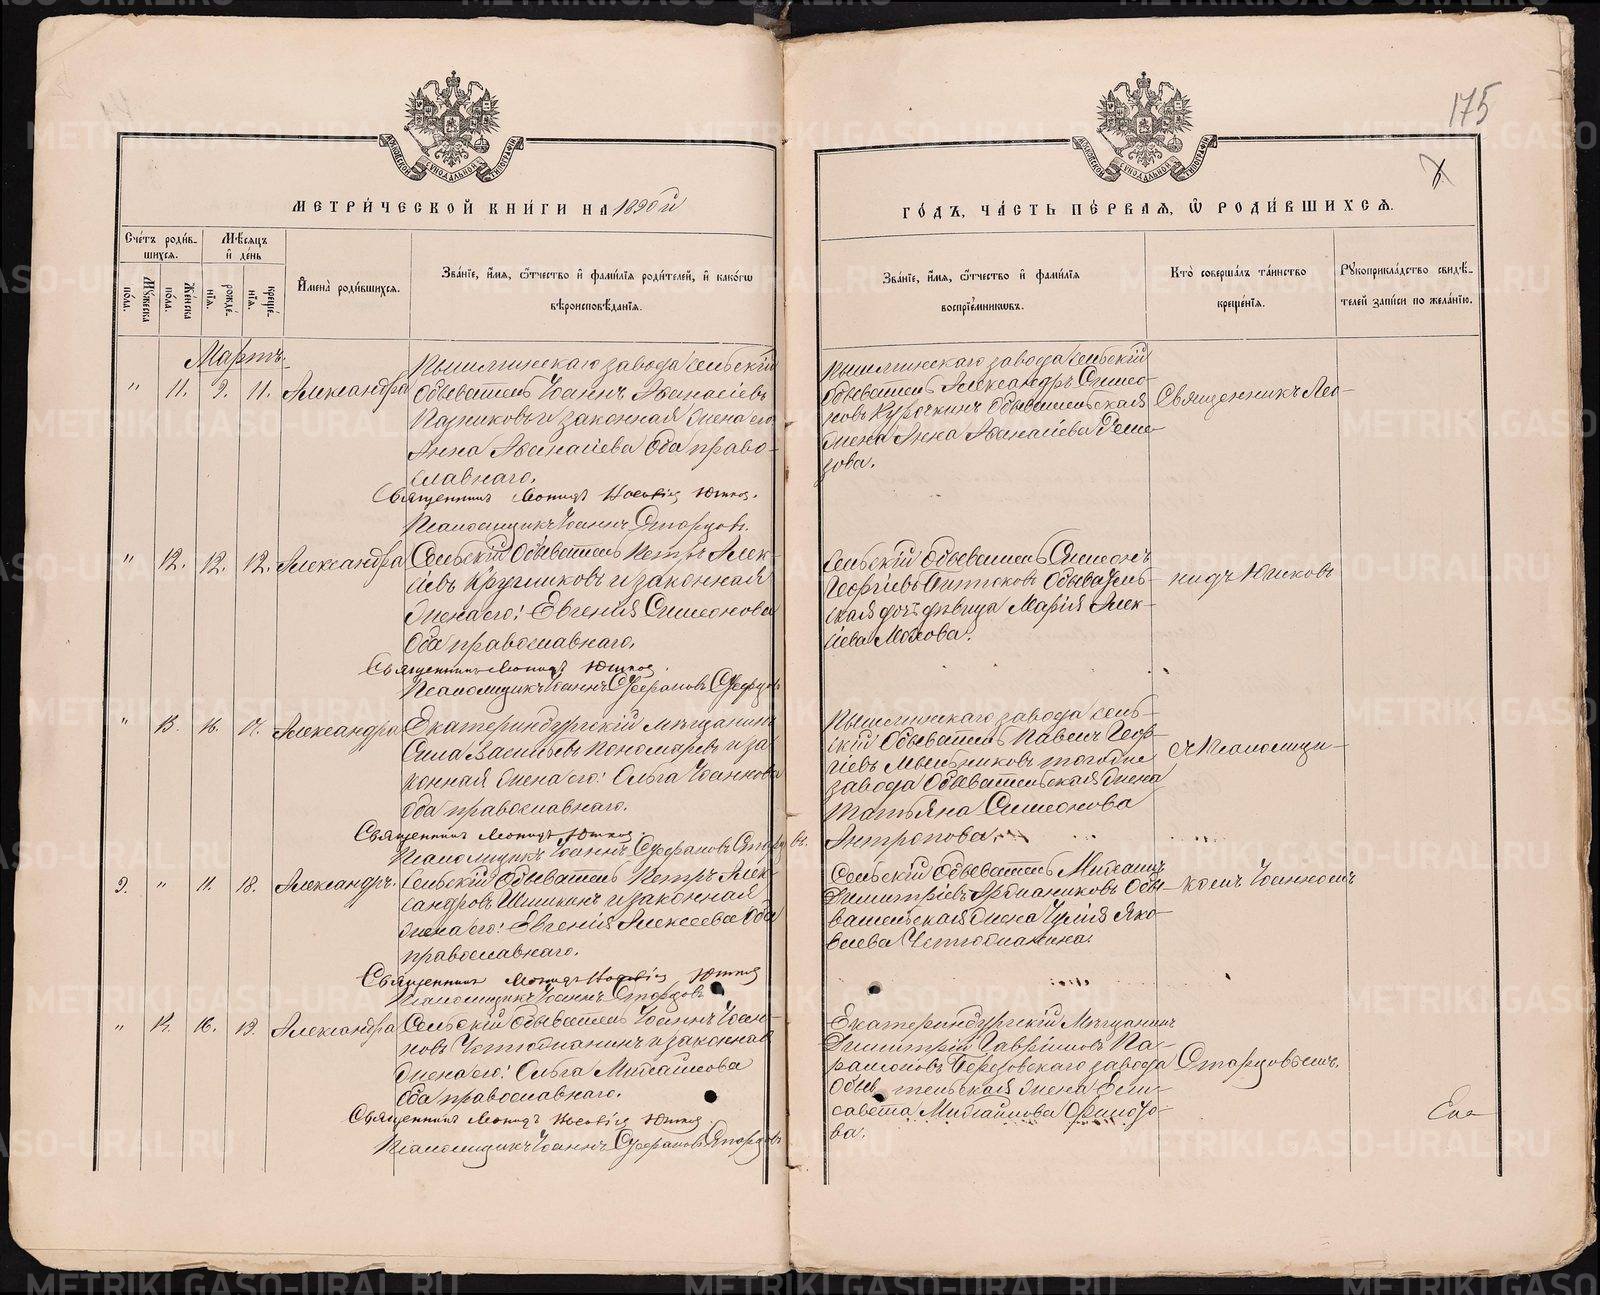 175
МОСКОВСКОЙ СѴНОДАЛЬНОЙ ТИПОГРАФІИ
МОСКОВСКОЙ СѴНОДАЛЬНОЙ ТИПОГРАФІИ
МЕТРИ́ЧЕСКОЙ КНИ́ГИ НА 1890й
ГО́ДЪ, ЧА́СТЬ ПЕ́РВАЯ, Ѡ РОДИ́ВШИХСЯ.
Сче́тъ роди́в-
шихся.
Му́жеска по́ла.
Же́нска по́ла.
Мѣ́сяцъ
и де́нь
рожде́нія.
креще́нія.
И҆мена̀ роди́вшихся.
Зва́ніе, и҆́мя, ѻ҆́тчество и҆ фами́лія роди́телей, и҆ како́гѡ
вѣроисповѣ́данія.
Зва́ніе, и҆́мя, ѻ҆́тчество и҆ фами́лія
воспріе́мникѡвъ.
Кто̀ соверша́лъ та́инство
креще́нія.
Рꙋкоприкла́дство свидѣ́-
телей за́писи по жела́нію.
Мартъ.
" 11. 9. 11. Александра
Пышминскаго завода сельскій
обыватель Іоаннъ Аѳанасіевъ
и законная жена его
Анна Аѳанасіева оба право-
славнаго.
Священникъ Леонидъ Юшков.
Псаломщикъ Іоаннъ Старцовъ.
Пышминскаго завода сельскій
обыватель Александръ Симео-
новъ Курочкинъ обывательская
жена Анна Аѳанасіева
Священникъ Лео-
" 12. 12. 12. Александра
Сельскій обыватель Петръ Алек-
сіевъ Кругликовъ и законная
жена его: Евгенія Симеонова
оба православнаго.
Священникъ Леонидъ Юшков.
Псаломщикъ Іоаннъ Стефановъ Старцовъ
Сельскій обыватель Симеонъ
Георгіевъ обыватель-
ская дочь дѣвица Марія Алек-
сіева
нидъ Юшковъ
" 13. 16. 17. Александра
Екатеринбургскій мѣщанинъ
Сила Васильевъ Пономаревъ и за-
конная жена его: Ольга Іоаннова
оба православнаго.
Священникъ Леонидъ Юшков.
Псаломщикъ Іоаннъ Стефановъ Старцовъ.
Пышминскаго завода сель-
скій обыватель Павелъ Геор-
гіевъ Мыльниковъ тогоже
завода обывательская жена
Татьяна Симеонова
Антропова.
съ Псаломщи-
9. " 11. 18. Александръ.
Сельскій обыватель Петръ Алек-
сандровъ и законная
жена его: Евгенія Алексеева оба
православнаго.
Священникъ Леонидъ Юшков
Псаломщикъ Іоаннъ Старцовъ
Сельскій обыватель Михаилъ
Димитріевъ обы-
вательская жена Іулія Яко-
влева
комъ Іоанномъ
" 14. 16. 19. Александра
Сельскій обыватель Іоаннъ Іоан-
новъ и законная
жена его: Ольга Михаилова
оба православнаго.
Священникъ Леонидъ Юшков.
Псаломщикъ Іоаннъ Стефановъ Старцовъ
Екатеринбургскій мѣщанинъ
Димитрій Гавріиловъ Ла-
ріоновъ Березовскаго завода
обывательская жена Ели-
савета Михайлова
ва.
Старцовымъ.
METRIKI.GASO-URAL.RU